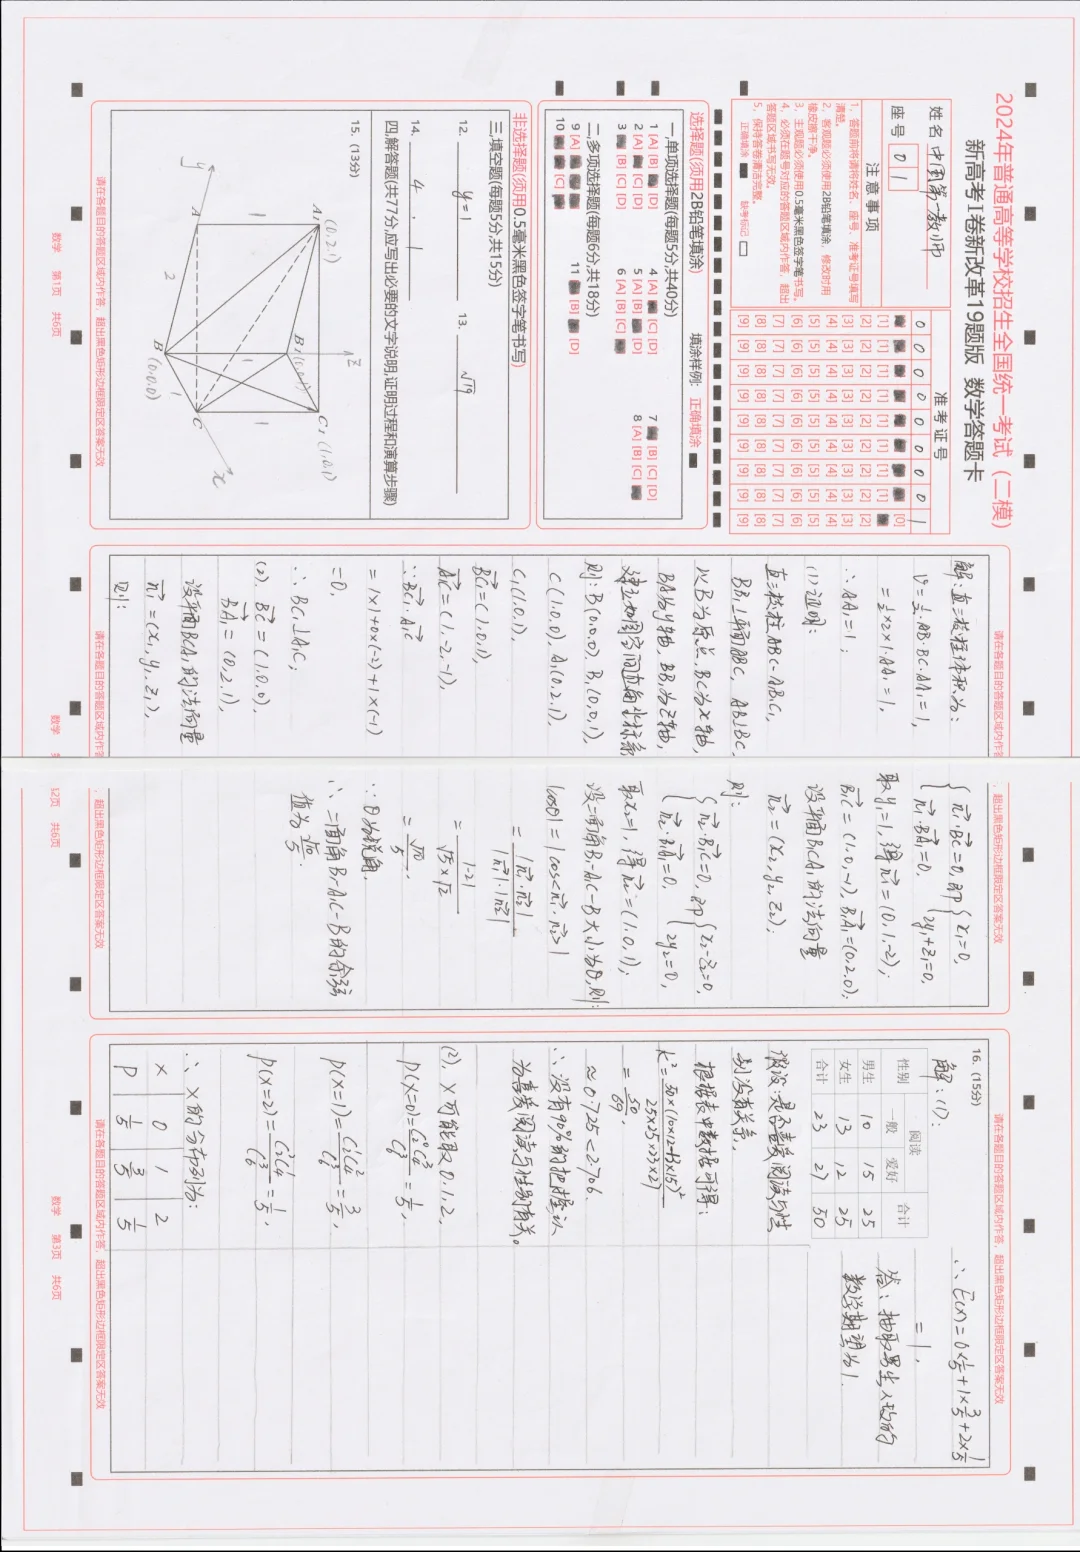 2024年普通高等学校招生全国统一考试（二模）
新高考Ⅰ卷新改革19题版 数学答题卡
姓名 中国第一教师
座号 0 1
准考证号
0 0 0 0 0 0 0 1
注意事项
1、答题前将请将姓名、座号、准考证号填写清楚。
2、客观题必须使用2B铅笔填涂，修改时用橡皮擦干净。
3、主观题必须使用0.5毫米黑色签字笔书写。
4、必须在题号对应的答题区域内作答，超出答题区域书写无效。
5、保持答卷清洁完整。
正确填涂 缺考标记
选择题(须用2B铅笔填涂) 填涂样例: 正确填涂
一,单项选择题(每题5分,共40分)
1 [A] [B] [D] 4 [A] [C] [D] 7 [B] [C] [D]
2 [A] [C] [D] 5 [A] [C] [D] 8 [A] [B] [C]
3 [B] [C] [D] 6 [A] [B] [C]
二,多项选择题(每题6分,共18分)
9 [A] 11 [B] [D]
10 [C]
非选择题(须用0.5毫米黑色签字笔书写)
三,填空题(每题5分,共15分)
12. y=1 13. √19
14. 4 ; 1
四,解答题(共77分,应写出必要的文字说明,证明过程和演算步骤)
15. (13分)
A₁ (0,2,1)
B₁ (0,0,1)
C₁ (1,0,1)
B (0,0,0)
A
C
x
y
z
1
2
1
1
1
请在各题目的答题区域内作答，超出黑色矩形边框限定区答案无效
数学 第1页 共6页
请在各题目的答题区域内作答，超出黑色矩形边框限定区答案无效
解：直三棱柱体积为：
V=½·AB·BC·AA₁=1，
=½×2×1·AA₁=1，
∴AA₁=1；
(1)证明：
直三棱柱ABC-A₁B₁C₁
BB₁⊥平面ABC，AB⊥BC，
以B为原点，BC为x轴，
BA为y轴，BB₁为z轴，
建立如图空间直角坐标系
则：B(0,0,0)，B₁(0,0,1)，
C(1,0,0)，A₁(0,2,1)，
C₁(1,0,1)，
BC₁=(1,0,1)，
A₁C=(1,-2,-1)，
∵BC₁·A₁C
=1×1+0×(-2)+1×(-1)
=0，
∴BC₁⊥A₁C；
(2)，BC=(1,0,0)，
BA₁=(0,2,1)，
设平面BCA₁的法向量
n₁=(x₁,y₁,z₁)，
则：
{n₁·BC=0，即{x₁=0，
n₁·BA₁=0， 2y₁+z₁=0，
取y₁=1，得n₁=(0,1,-2)；
B₁C=(1,0,-1)，B₁A₁=(0,2,0)；
设平面B₁CA₁的法向量
n₂=(x₂,y₂,z₂)；
则：
{n₂·B₁C=0，即{x₂-z₂=0，
n₂·B₁A₁=0， 2y₂=0，
取x₂=1，得n₂=(1,0,1)；
设二面角B₁-A₁C-B大小为θ,则：
|cosθ|=|cos<n₁·n₂>|
=|n₁·n₂|/|n₁|·|n₂|
=|-2|/√5×√2
=√10/5；
∵θ为锐角，
∴二面角B₁-A₁C-B的余弦
值为√10/5.
请在各题目的答题区域内作答，超出黑色矩形边框限定区答案无效
数学 第2页 共6页
请在各题目的答题区域内作答，超出黑色矩形边框限定区答案无效
16. (15分)
解：(1)：
性别 阅读 合计
一般 爱好
男生 10 15 25
女生 13 12 25
合计 23 27 50
假设：是否喜爱阅读与性
别没有关系，
根据表中数据可得：
k²=50×(10×12-13×15)²/25×25×23×27
=50/69，
≈0.725<2.706.
∴没有90%的把握认
为喜爱阅读与性别有关。
(2)，X可能取0,1,2，
P(X=0)=C₂⁰C₄³/C₆³=1/5，
P(X=1)=C₂¹C₄²/C₆³=3/5，
P(X=2)=C₂²C₄¹/C₆³=1/5，
∴X的分布列为：
X 0 1 2
P 1/5 3/5 1/5
∴E(X)=0×1/5+1×3/5+2×1/5
=1，
答：抽取男生人数的
数学期望为1.
请在各题目的答题区域内作答，超出黑色矩形边框限定区答案无效
数学 第3页 共6页